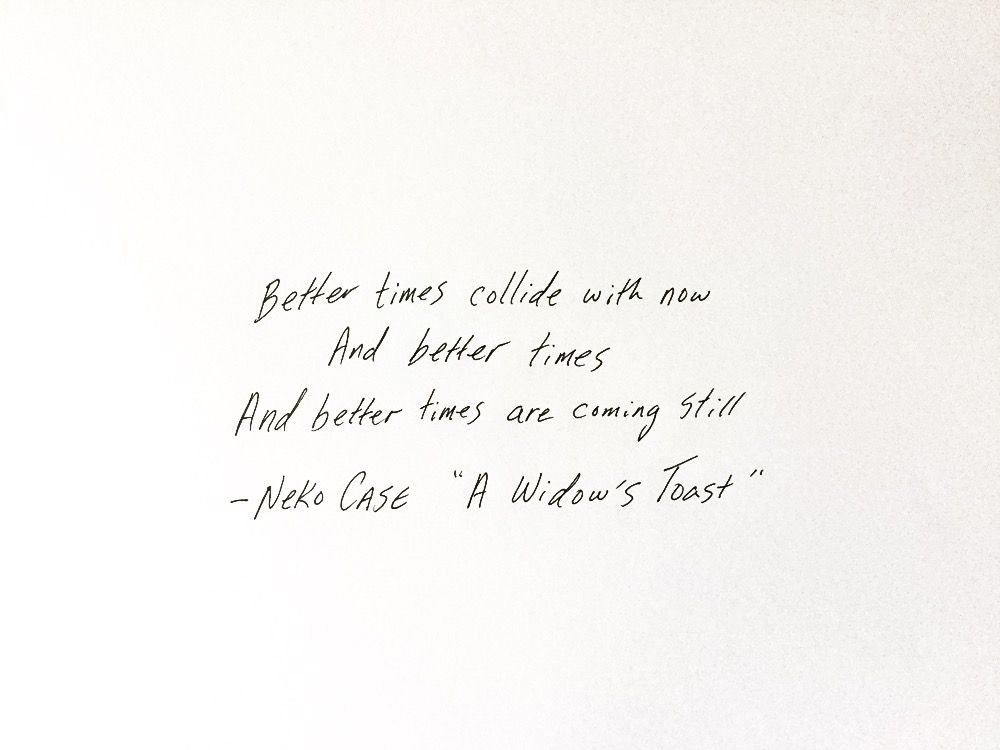 Better times collide with now
And better times
And better times are coming still
- Neko Case "A Widow's Toast"